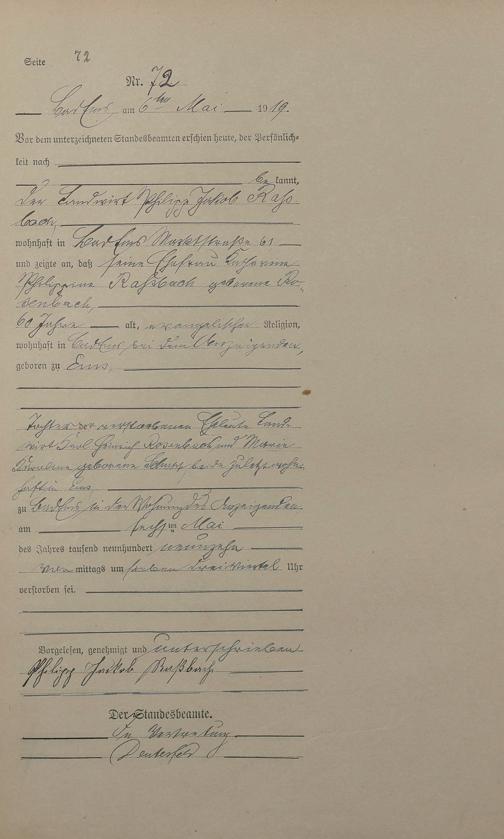 Seite 72
Nr. 72
Bad Ems am 6ten Mai 1919.
Vor dem unterzeichneten Standesbeamten erschien heute, der Persönlich-
keit nach
bekannt,
der Landwirt Philipp Jakob Raß-
bach,
wohnhaft in Bad Ems Marktstraße 61
und zeigte an, daß seine Ehefrau Katharine
Philippine Raßbach geborene Ro-
senbach,
60 Jahre alt, evangelischer Religion,
wohnhaft in Bad Ems, bei dem Anzeigenden,
geboren zu Ems,
Tochter der verstorbenen Eheleute Land-
wirt Karl Heinrich Rosenbach und Marie
geborene beide zuletzt wohn-
haft in Ems,
zu Bad Ems in der Wohnung des Anzeigenden
am sechsten Mai
des Jahres tausend neunhundert neunzehn
Vormittags um sieben dreiviertel Uhr
verstorben sei.
Vorgelesen, genehmigt und unterschrieben
Philipp Jackob Raßbach
Der Standesbeamte.
In Vertretung